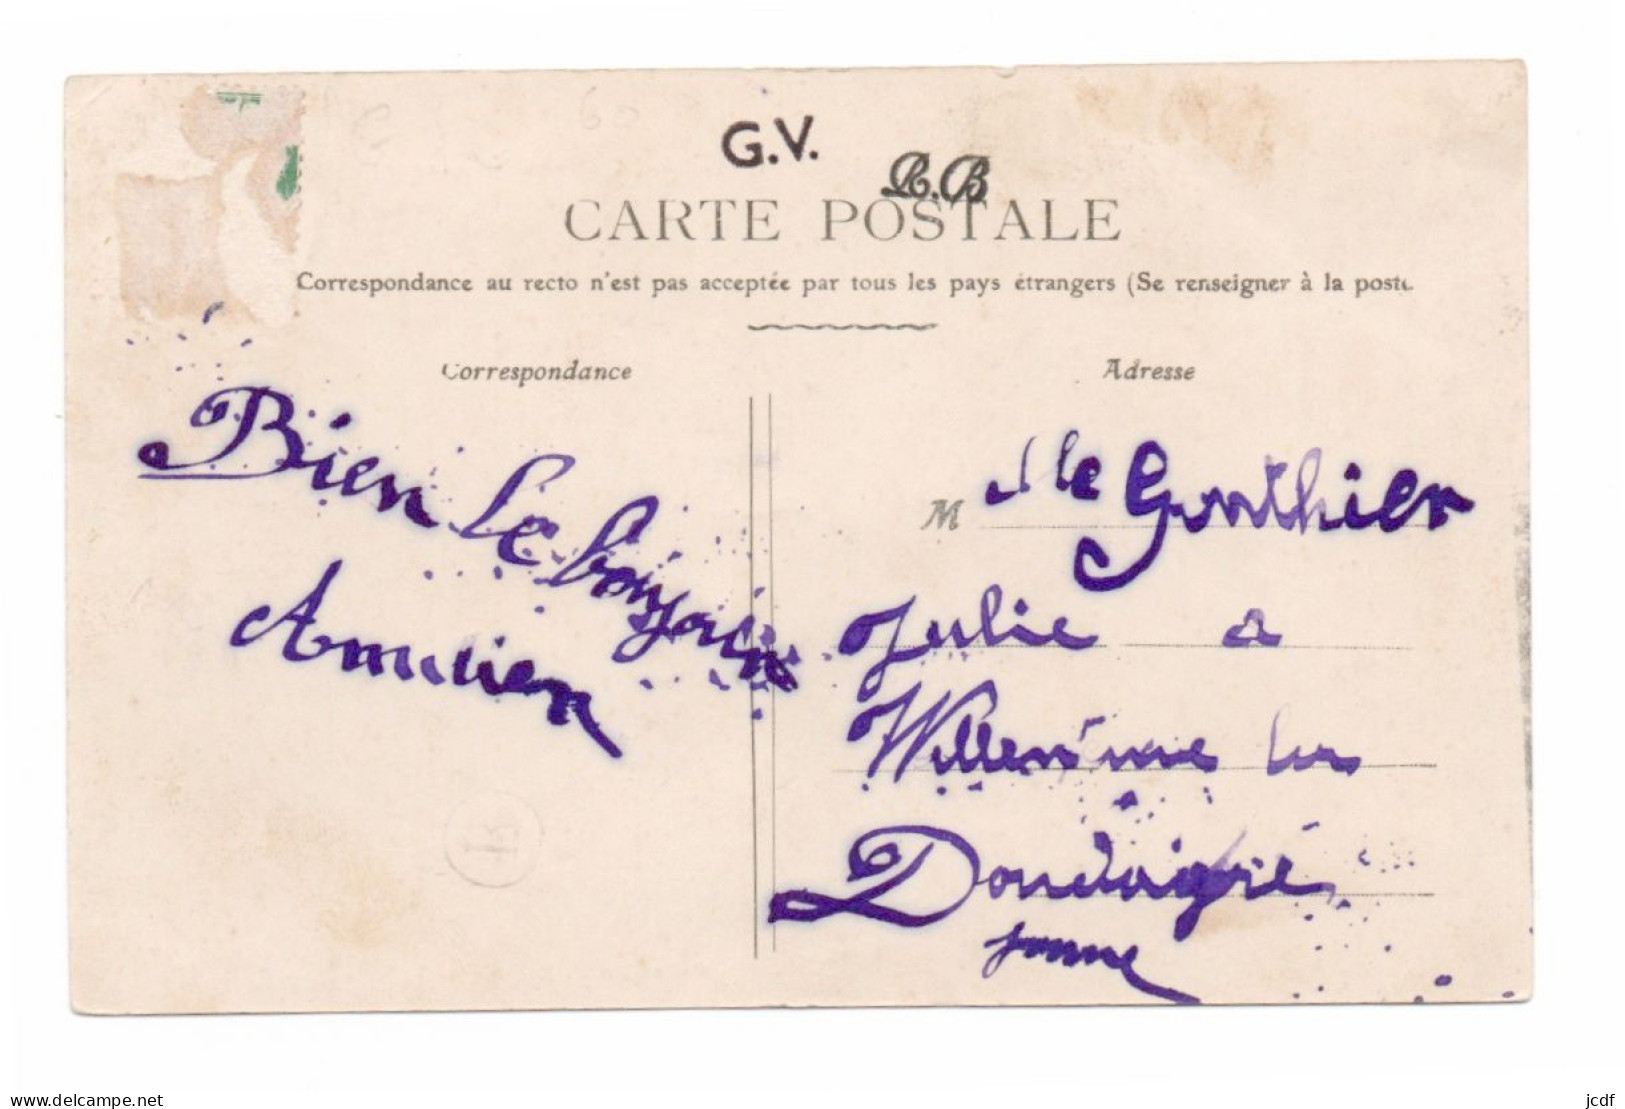 G.V.
R.B
CARTE POSTALE
Correspondance au recto n'est pas acceptée par tous les pays étrangers (Se renseigner à la poste
Correspondance
Adresse
Bien Le bonjour
M lle Gonthier
Julie a
les
delcampe.net
jcdf